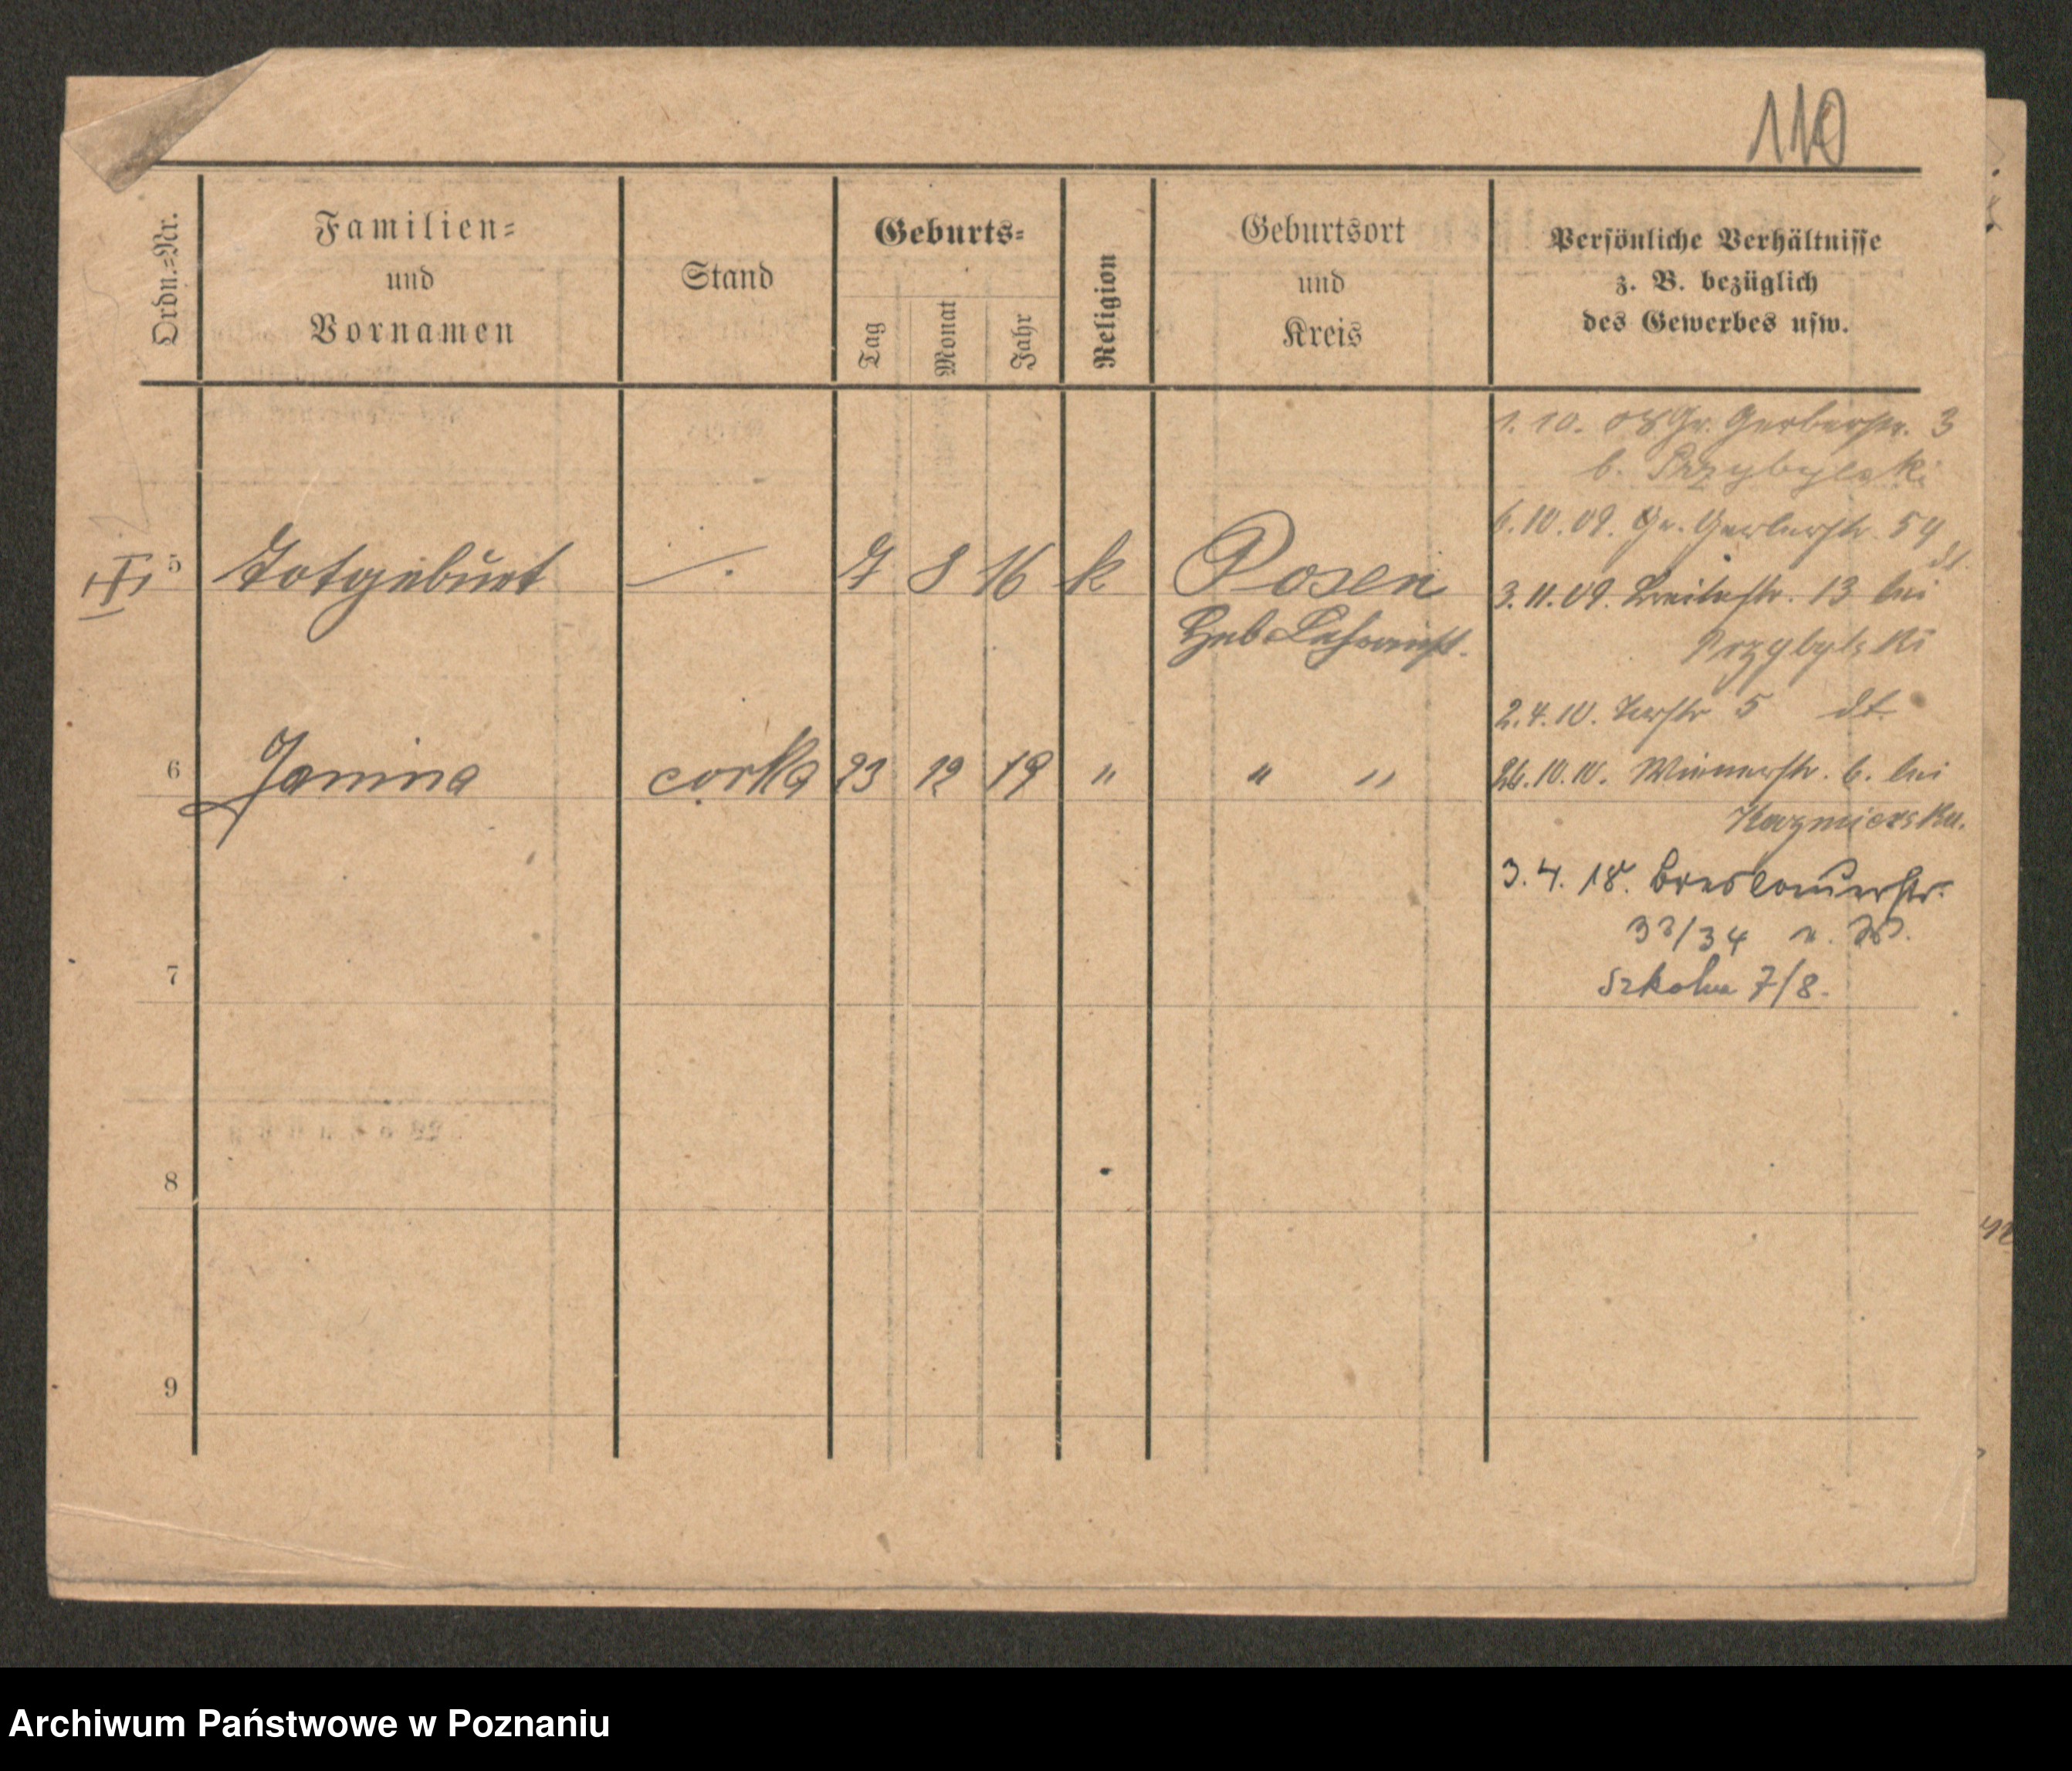 110
Ordn.=Nr.
Familien=
und
Vornamen
Stand
Geburts=
Tag
Monat
Jahr
Religion
Geburtsort
und
Kreis
Persönliche Verhältnisse
z. B. bezüglich
des Gewerbes usw.
1. 10. 08 Gr. Gerberstr. 3
b. Przybylski
6. 10. 09. Gr. Gerberstr. 54
dt.
5 Totgeburt 7 8 16 k Posen
3. 11. 09. Breitestr. 13 bei
Przybylski
2. 4. 10. 5 dt.
6 Janina corka 23 12 19 " " "
26. 10. 10. Wienerstr. 6. bei
Kazmierska.
3. 4. 18. Breslauerstr.
33/34
7
Szkolna 7/8.
8
9
Archiwum Państwowe w Poznaniu